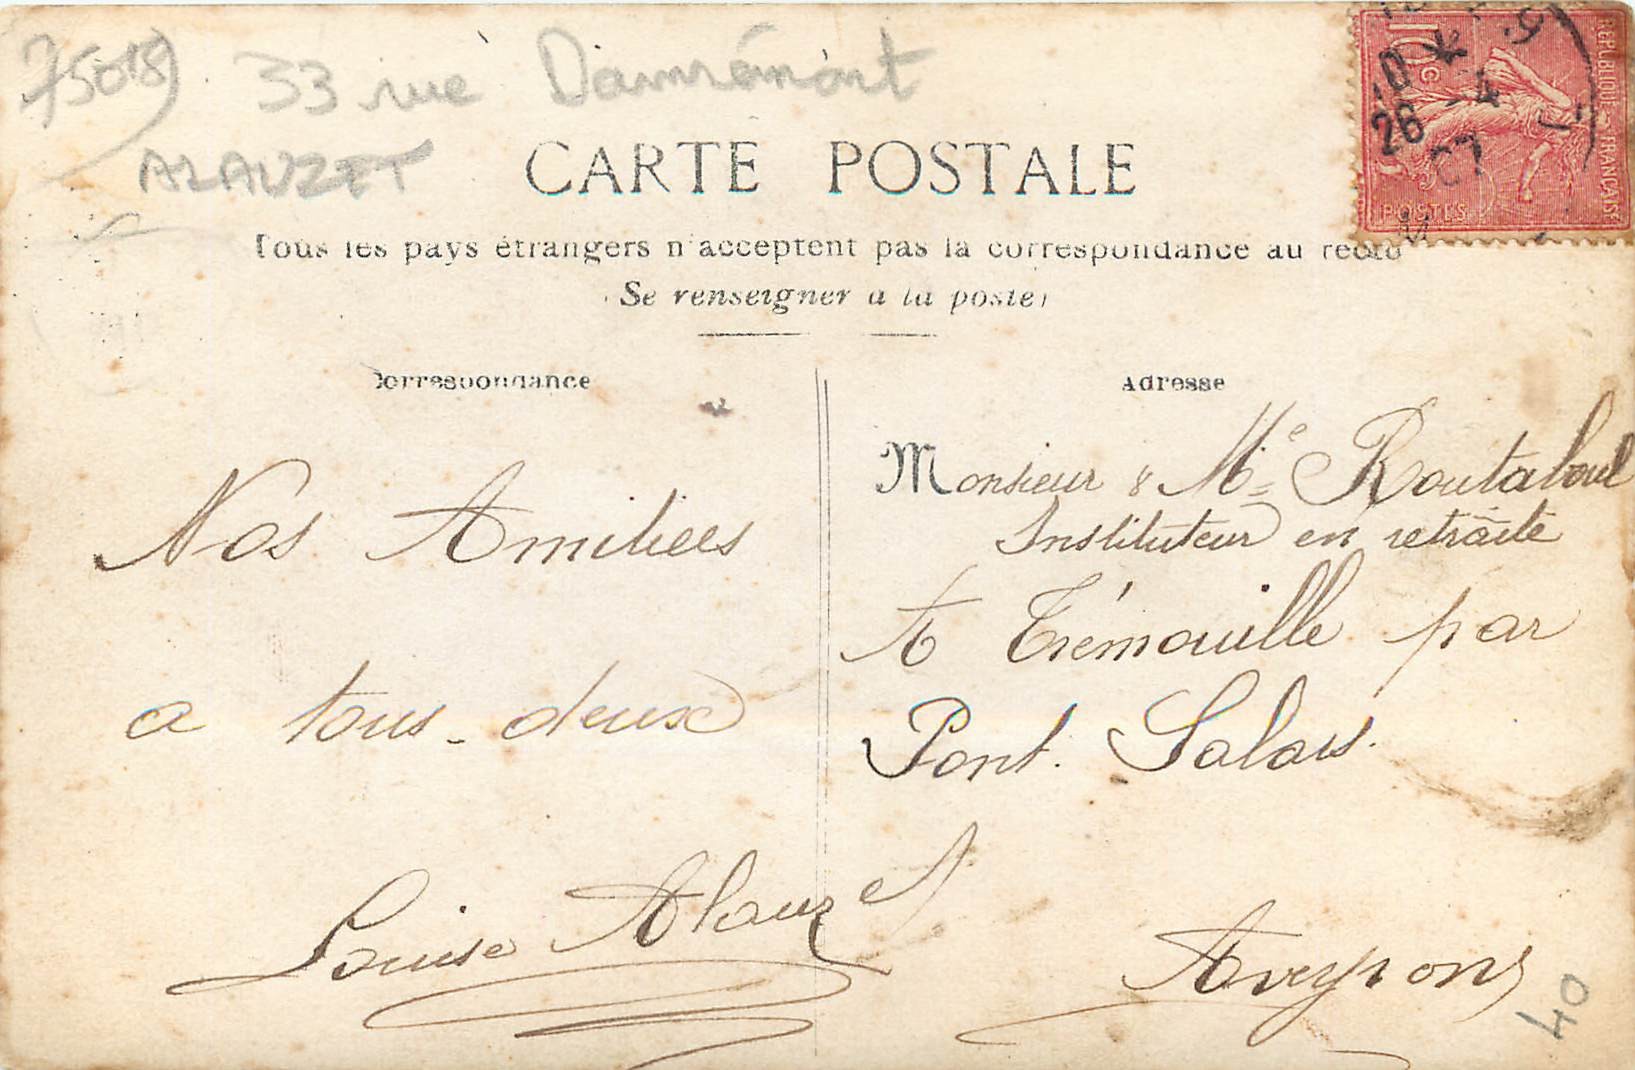 75018 33 rue Damrémont
ALAUZET
CARTE POSTALE
Tous les pays étrangers n'acceptent pas la correspondance au recto
(Se renseigner à la poste)
Correspondance
Nos Amitiées
a tous deux
Louise Alauzet
Adresse
Monsieur & Me Routaboul
Instituteur en retraite
A Trémouille par
Pont. Salars.
Aveyron
40
REPUBLIQUE FRANÇAISE
10c
POSTES
10
26 -4
07